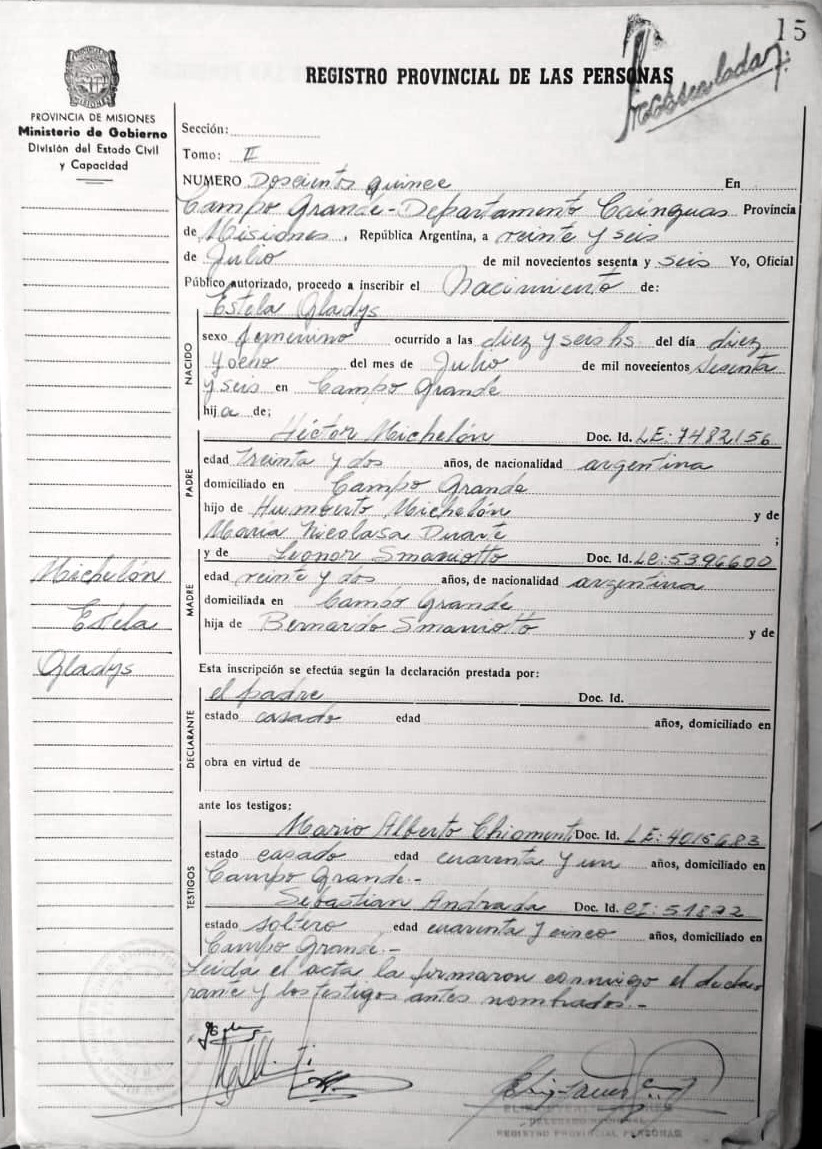 15
REGISTRO PROVINCIAL DE LAS PERSONAS
PROVINCIA DE MISIONES
Ministerio de Gobierno
División del Estado Civil
y Capacidad
Sección:
Tomo: II
NUMERO Doscientos quince En
Campo Grande-Departamento Cainguas Provincia
de Misiones, República Argentina, a veinte y seis
de Julio de mil novecientos sesenta y seis Yo, Oficial
Público autorizado, procedo a inscribir el Nacimiento de:
Estela Gladys
NACIDO
sexo femenino ocurrido a las diez y seis hs del día diez
y ocho del mes de Julio de mil novecientos sesenta
y seis en Campo Grande
hija de;
Héctor Michelón Doc. Id. LE:7482156
PADRE
edad treinta y dos años, de nacionalidad argentina
domiciliado en Campo Grande
hijo de Humberto Michelón y de
Maria Nicolasa Duarte ;
y de Leonor Smaniotto Doc. Id. LC:5396600
MADRE
edad veinte y dos años, de nacionalidad argentina
domiciliada en Campo Grande
hija de Bernardo Smaniotto y de
Michelón
Estela
Gladys
Esta inscripción se efectúa según la declaración prestada por:
el padre Doc. Id.
DECLARANTE
estado casado edad años, domiciliado en
obra en virtud de
ante los testigos:
Mario Alberto Chiament Doc. Id. LE:4015683
TESTIGOS
estado casado edad cuarenta y un años, domiciliado en
Campo Grande.-
Sebastian Andrada Doc. Id. CI:51822
estado soltero edad cuarenta y cinco años, domiciliado en
Campo Grande.-
Leida el acta la firmaron conmigo el decla
rante y los testigos antes nombrados.-
REGISTRO PROVINCIAL PERSONAS